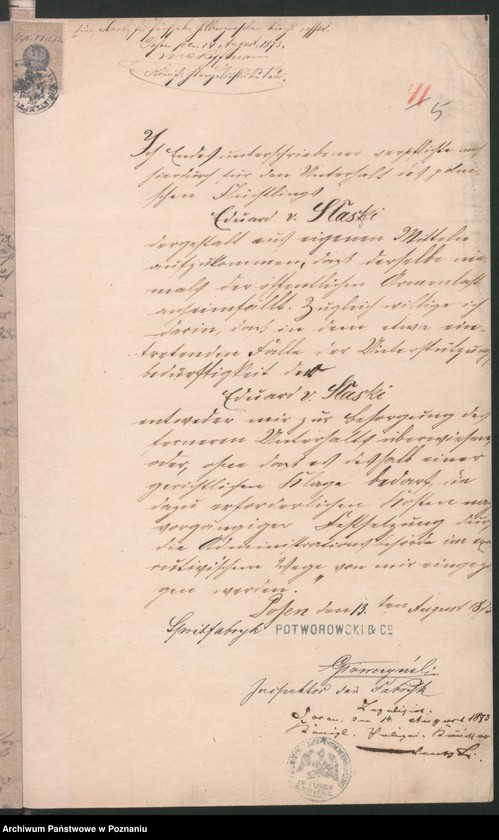 Posen den 14 August 1873.
41
5
Ich Endesunterschriebener verpflichte mich
hierdurch für den Unterhalt des polni-
schen Flüchtlings
Eduard v. Slaski
dergestalt aus eigenen Mitteln
aufzukommen, daß derselbe nie-
mals der öffentlichen Armenlast
anheimfällt. Zugleich willige ich
darin, daß in dem etwa ein-
tretenden Falle der Unterstützungs
bedürftigkeit des
Eduard v. Slaski
entweder mir zur Besorgung des
ferneren Unterhalts überwiesen
oder, ohne daß es deshalb einer
gerichtlichen Klage bedarf, die
dazu erforderlichen Kosten nach
vorgängiger Festsetzung durch
die Administrationsbehörde im exe-
cutivischem Wege von mir eingezo-
gen werden."
Posen den 13. ten August 1873
Spritfabryk POTWOROWSKI & Co
Inspektor der Fabryk
Legalisirt.
Posen, den 14. August 1873
Königl. Polizei-
Archiwum Państwowe w Poznaniu